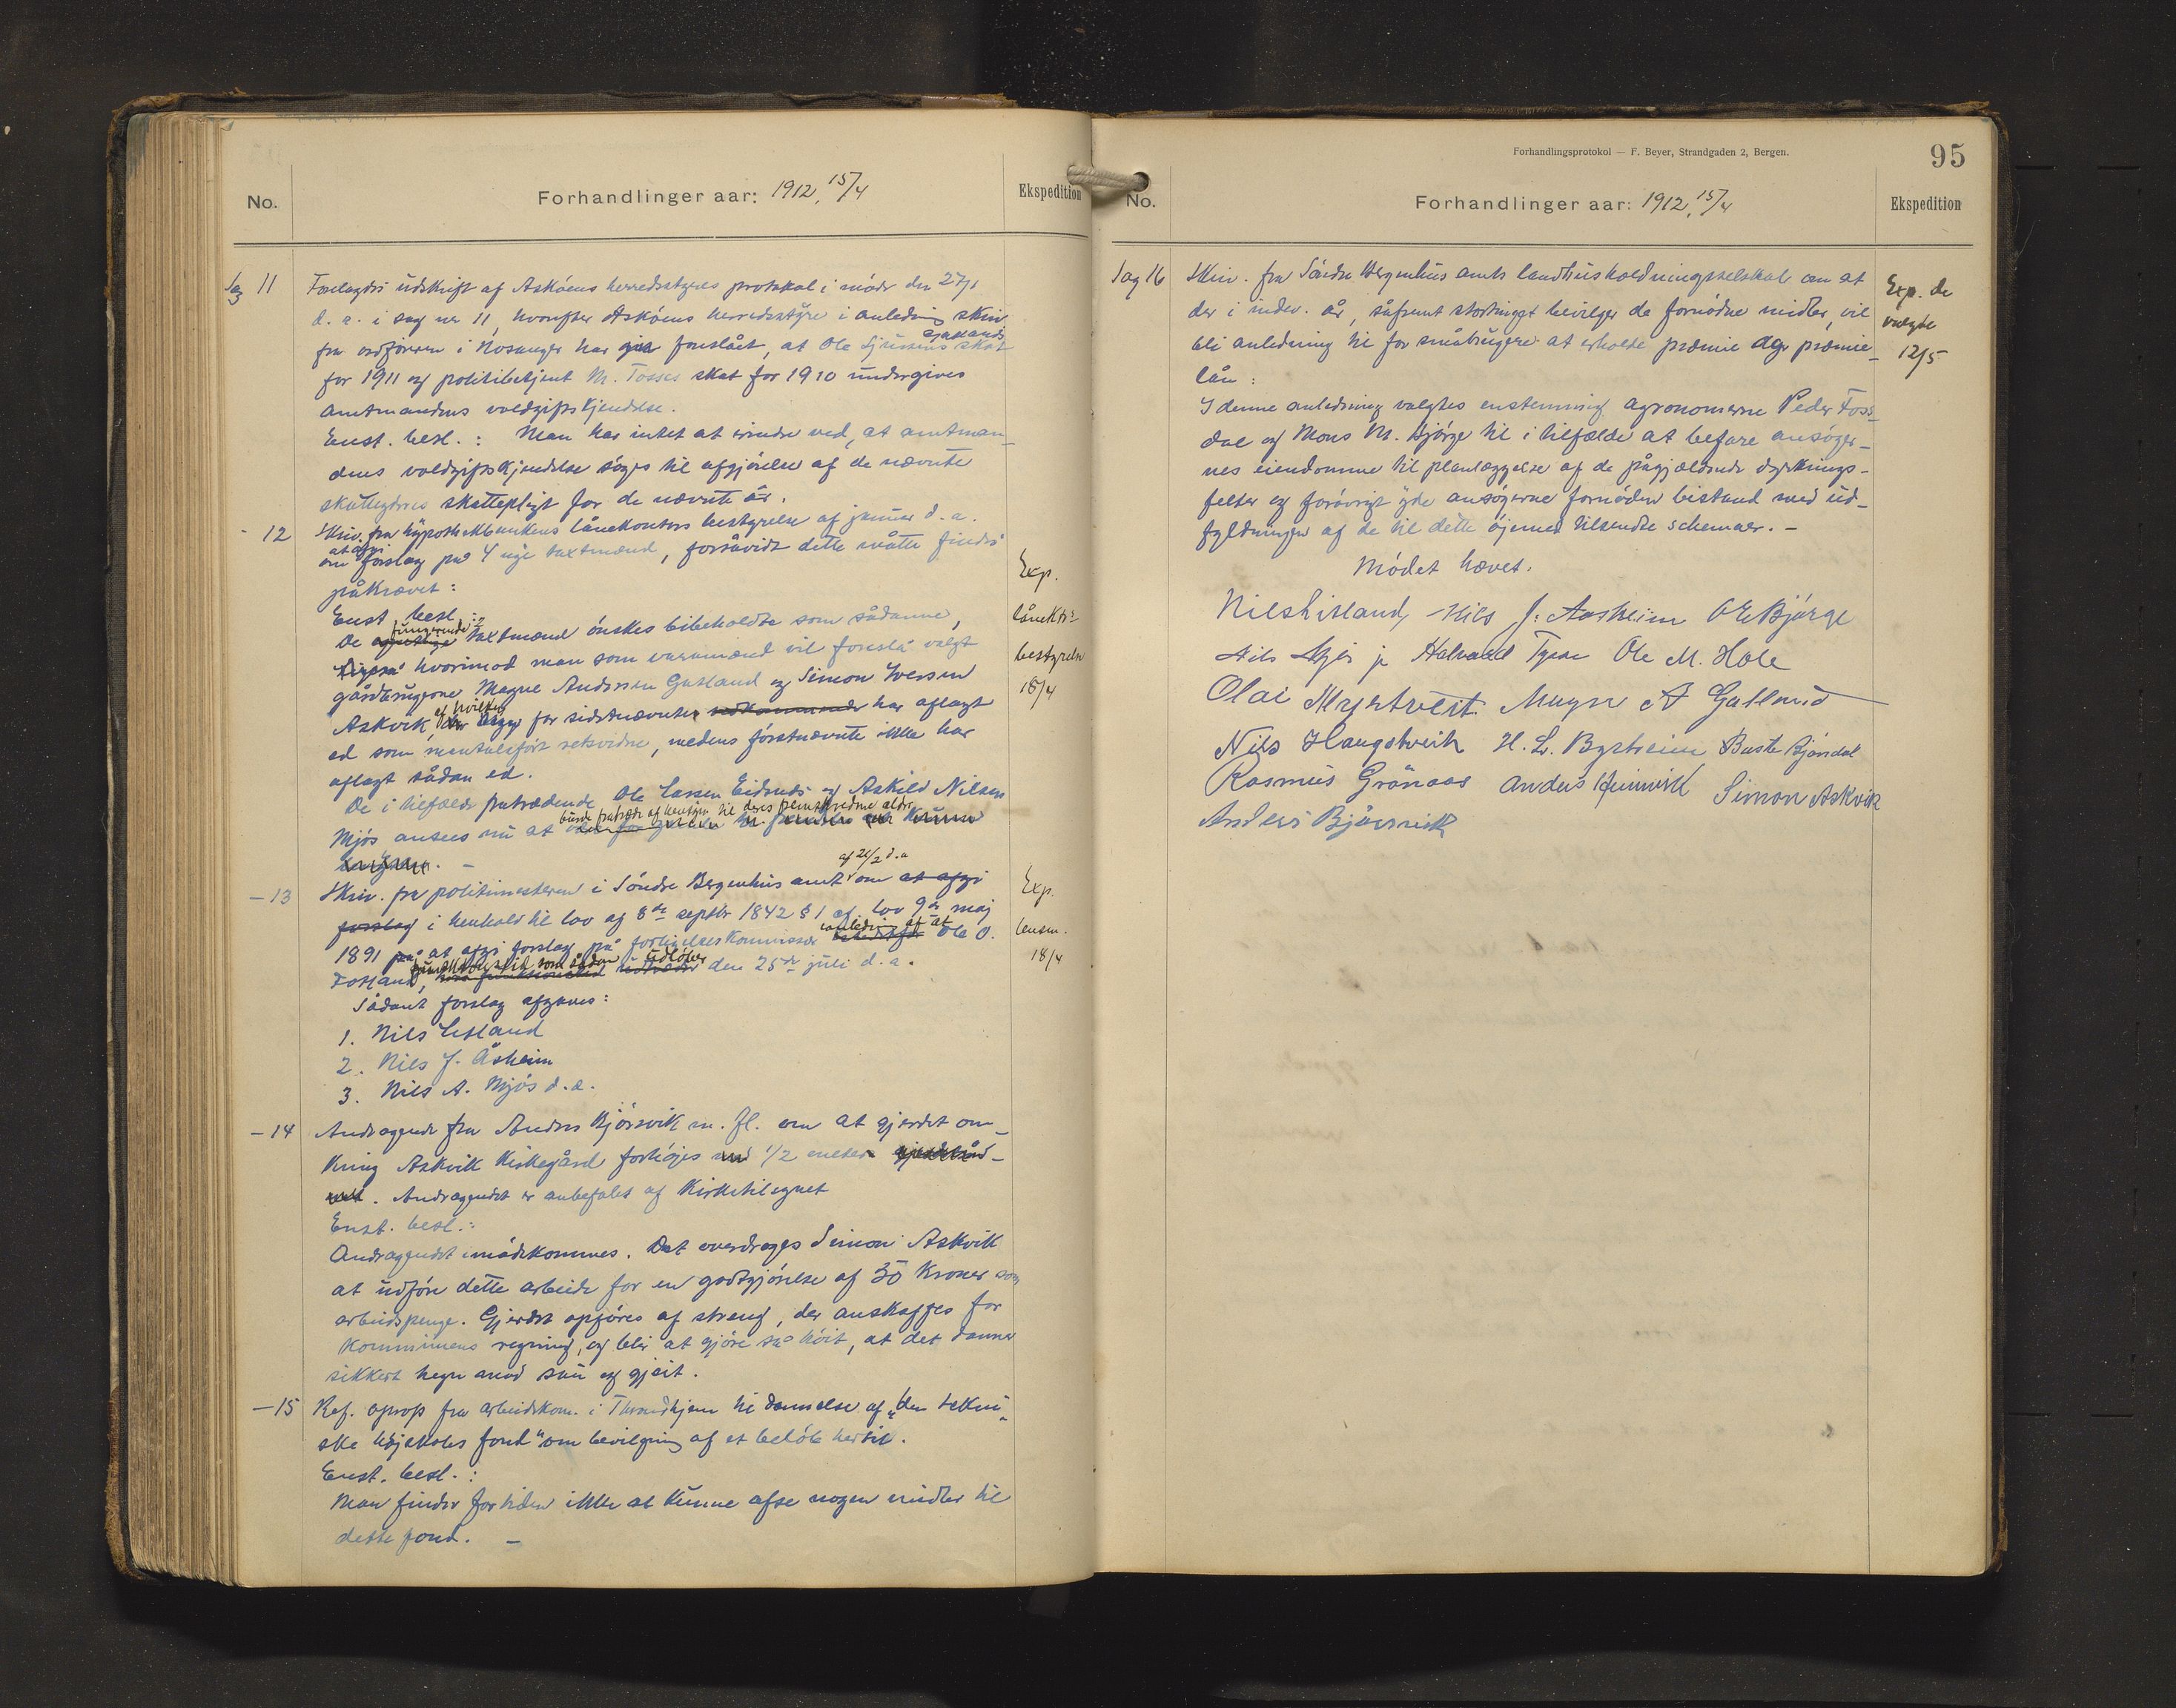 No.
Forhandlinger aar: 1912, 15/4
Ekspedition
Sag 11
Forelagdes udskrift af Askóens herredsstyres protokol i móde den 27/1
d. a. i sag nr 11, hvorefter Askóens herredsstyre i anledning skriv.
fra ordfóreren i Hosanger har foreslået, at Ole skat
for 1911 og politibetjent M. Tosses skat for 1910 undergives
amtmandens voldgiftskjendelse.
Enst. besl.: Man har intet at erindre ved, at amtman-
dens voldgiftskjendelse sóges til afgjórelse af de nævnte
skatteyderes skattepligt for de nævnte år.
- 12
Skriv. fra hypothekbankens lånekontors bestyrelse af januar d. a.
om at afgi forslag på 4 nye taxtmænd, forsåvidt dette måtte findes
påkrævet:
Enst. besl.:
De fungerende taxtmænd ónskes bibeholdte som sådanne,
hvorimod man som varamænd vil foreslå valgt
gårdbrugerne Magne Andersen Gulland og Simon Iversen
Askvik, af hvilke for sidstnævnte har aflagt
ed som mentalesfórt retsvidne, medens fórstnævnte ikke har
aflagt sådan ed.
De i tilfælde fratrædende Ole Larsen Eidsnes og Askild Nilsen
Mjós ansees nu at burde fratræde af hensyn til deres fremskredne alder
Exp.
lånektrs
bestyrelse
18/4
- 13
Skriv. fra politimesteren i Sóndre Bergenhus amt af 21/2 d. a om at afgi
forslag i henhold til lov af 8de septbr 1842 § 1 cf. lov 9de maj
1891 på at afgi forslag på forligelseskommissær i anledning af at Ole O.
Fosland, funktionstid som sådan udlóber den 25de juli d. a.
Sådant forslag afgaves:
1. Nils Litland
2. Nils J. Åsheim
3. Nils A. Mjós d. æ.
Exp.
lensm.
18/4
- 14
Andragende fra Anders Bjórsvik m. fl. om at gjerdet om-
kring Askvik kirkegård forhóies med 1/2 meter
Andragendet er anbefalet af kirketilsynet
Enst. besl.:
Andragendet imódekommes. Det overdrages Simon Askvik
at udfóre dette arbeide for en godtgjórelse af 30 kroner som
arbeidspenge. Gjerdet opfóres af streng, der anskaffes for
kommunens regning, og blir at gjóre så hóit, at det danner
sikkert hegn mod sau og gjeit.
- 15
Ref. oprop fra arbeidskom. i Throndhjem til dannelse af „den tekni-
ske hójskoles fond" om bevilgning af et belób hertil.
Enst. besl.:
Man finder for tiden ikke at kunne afse nogen midler til
dette fond. -
Forhandlingsprotokol — F. Beyer, Strandgaden 2, Bergen.
95
No.
Forhandlinger aar: 1912, 15/4
Ekspedition
Sag 16
Skriv. fra Sóndre Bergenhus amts landhusholdningsselskab om at
der i indev. år, såfremt stortinget bevilger de fornódne midler, vil
bli anledning til for småbrugere at erholde præmie og præmie-
lån:
I denne anledning valgtes enstemmig agronomerne Peder Foss-
dal og Mons M. Bjórge til i tilfælde at befare ansóger-
nes eiendomme til planlæggelse af de pågjældende dyrknings-
felter og foróvrigt yde ansógerne fornóden bistand med ud-
fyldningen af de til dette óiemed tilsendte schemaer. -
Módet hævet.
Exp. de
valgte
12/5
Nils Litland, Nils J. Aasheim O E Bjórge
Nils Mjós jr Halvard Tyssen Ole M. Hole
Olai Myrtveit. Magne A Gulland
Nils Haugstveit H. L. Byrheim Baste Bjóndal
Rasmus Grónaas Anders Simon Askvik
Anders Bjórsvik